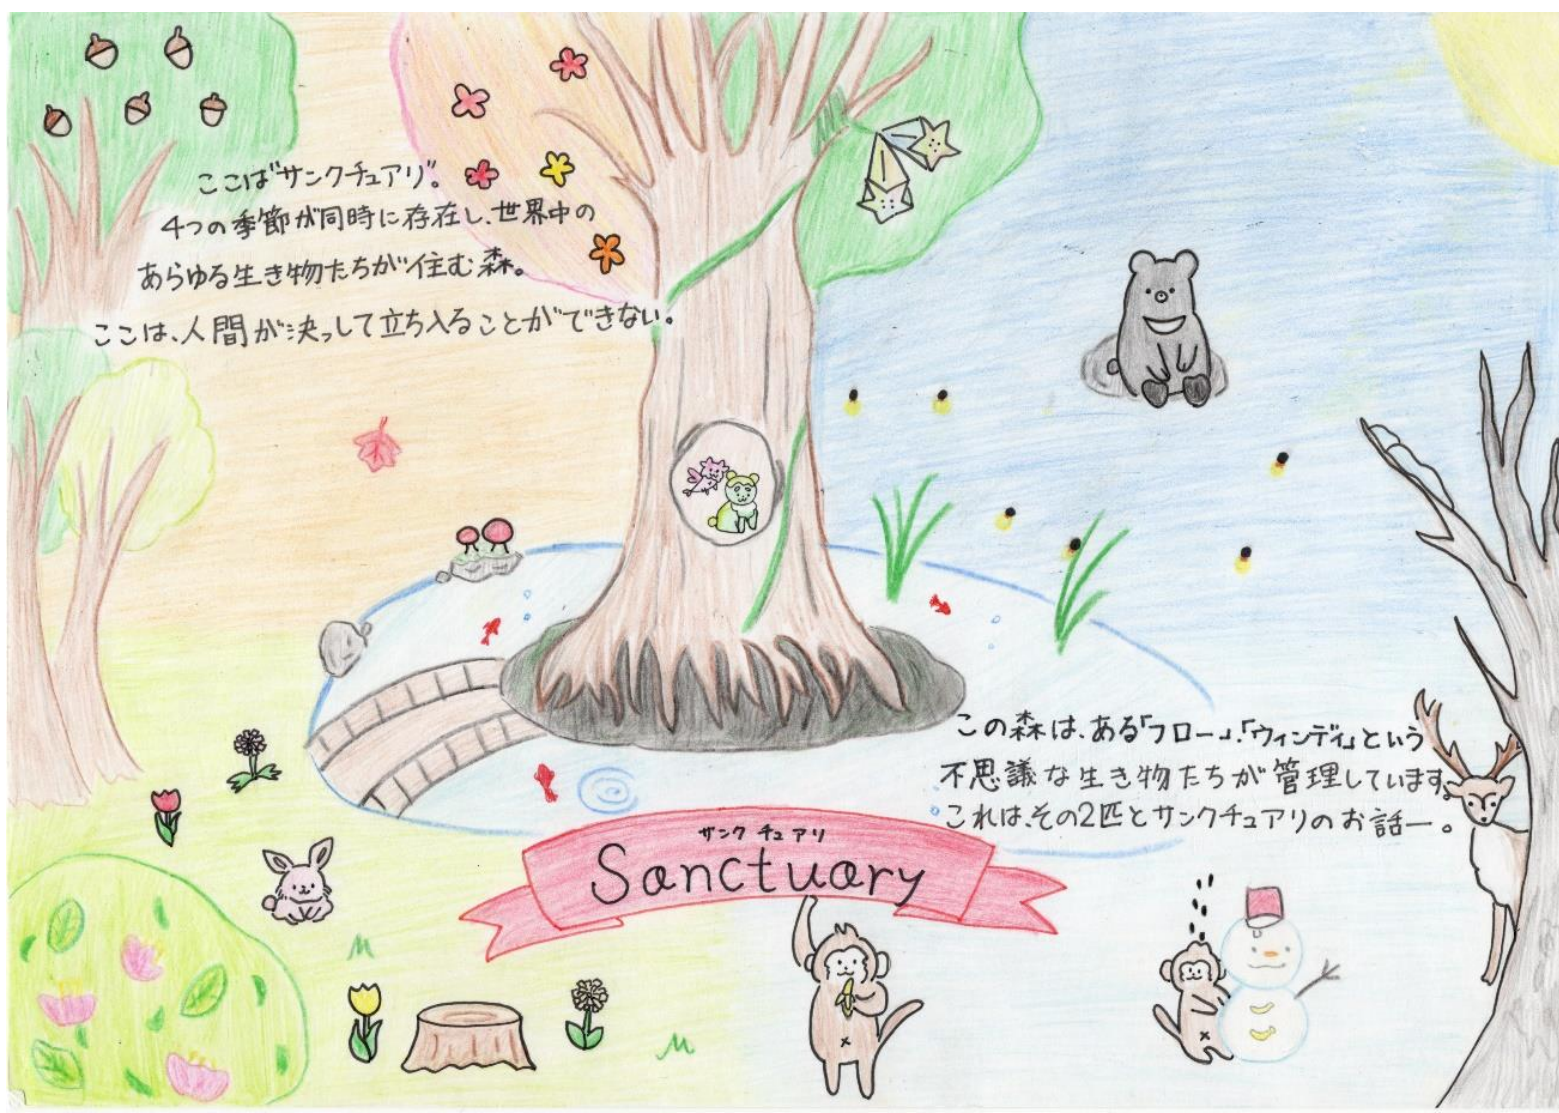 ここは"サンクチュアリ"。
4つの季節が同時に存在し、世界中の
あらゆる生き物たちが住む森。
ここは、人間が決っして立ち入ることができない。
この森は、ある「フロー」、「ウィンディ」という
不思議な生き物たちが管理しています。
これは、その2匹とサンクチュアリのお話ー。
サンクチュアリ
Sanctuary